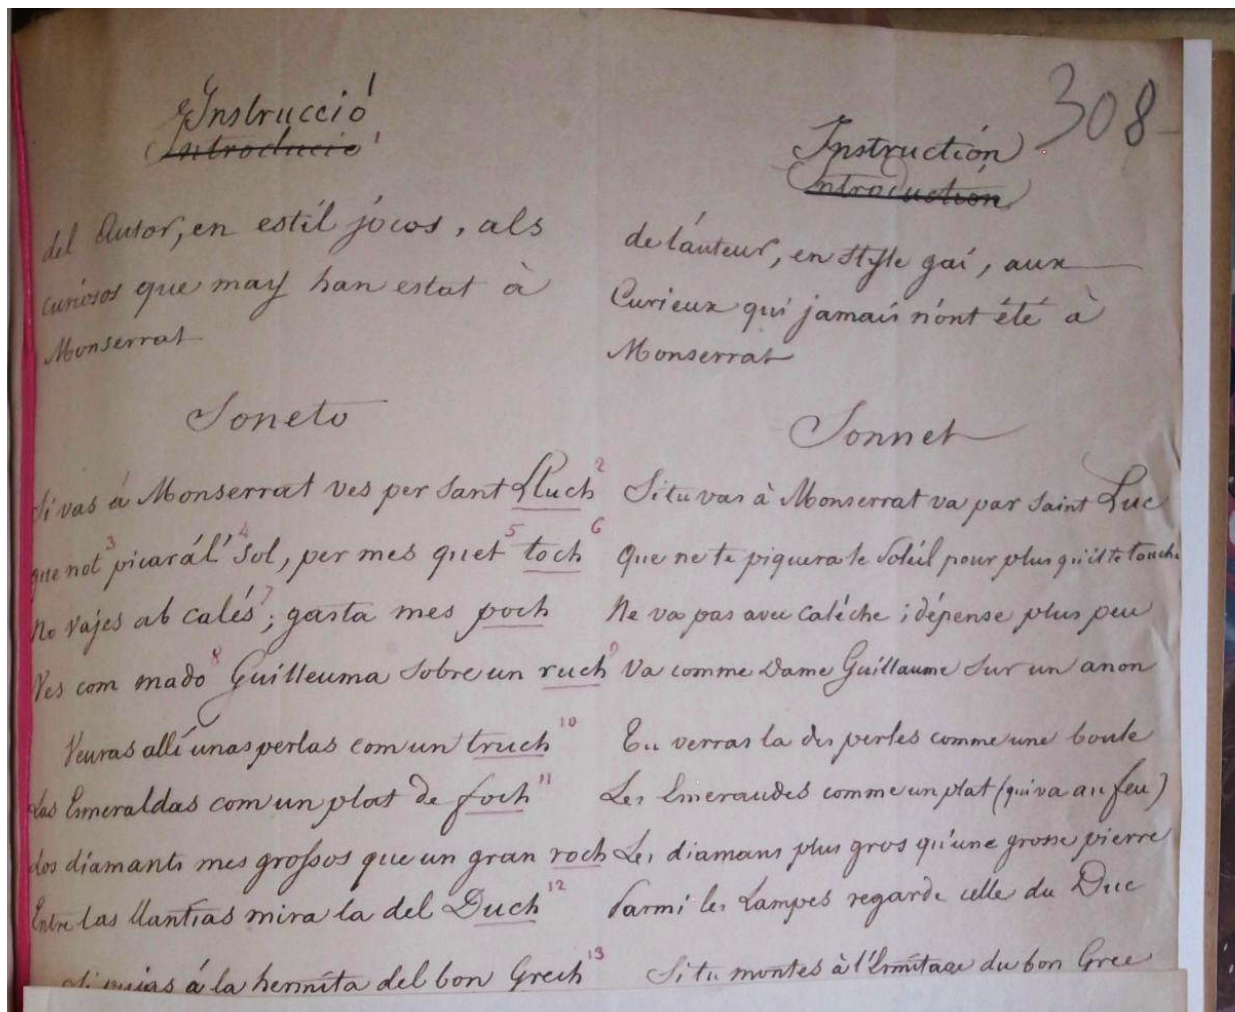 308
Instrucció
Introducció
del Autor, en estil jócos, als
curiosos que may han estat à
Monserrat
Soneto
Si vas á Monserrat ves per Sant Lluch 2
que not 3 picarál' 4 Sol, per mes quet 5 toch 6
No vajes ab calés 7; gasta mes poch
Ves com mado 8 Guilleuma sobre un ruch 9
Veuras allí unas perlas com un truch 10
Las Esmeraldas com un plat de foch 11
Los diamants mes grossos que un gran roch
Entre las llantias mira la del Duch 12
Si pujas á la hermita del bon Grech 13
Instructión
Introductión
de láuteur, en style gai, aux
Curieux qui jamais n'ont été à
Monserrat
Sonnet
Si tu vas à Monserrat va par Saint Luc
Que ne te piquera le Soléil pour plus qu'il te touche
Ne va pas avec caléche ; dépense plus peu
Va comme Dame Guillaume sur un anon
Tu verras la des perles comme une boule
Les Emeraudes comme un plat (qui va au feu)
Les diamans plus gros qu'une grosse pierre
Parmi les Lampes regarde celle du Duc
Si tu montes à l'Ermitage du bon Grec